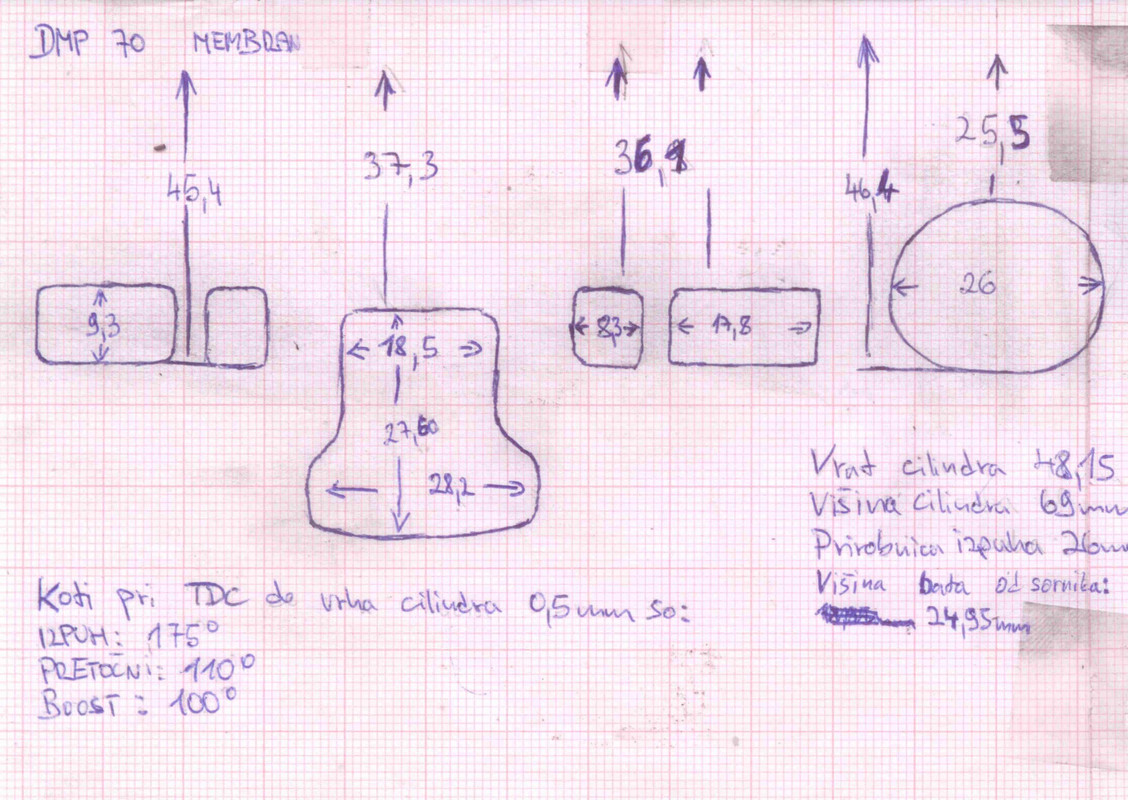 DMP 70 MEMBRAN
45,4
37,3
36,9
46,4
25,5
9,3
18,5
27,60
28,2
8,3
17,8
26
Vrat cilindra 48,15
Višina cilindra 69mm
Prirobnica izpuha 26mm
Višina bata od sornika:
24,95mm
Koti pri TDC do vrha cilindra 0,5mm so:
IZPUH: 175°
PRETOČNI: 110°
BOOST: 100°